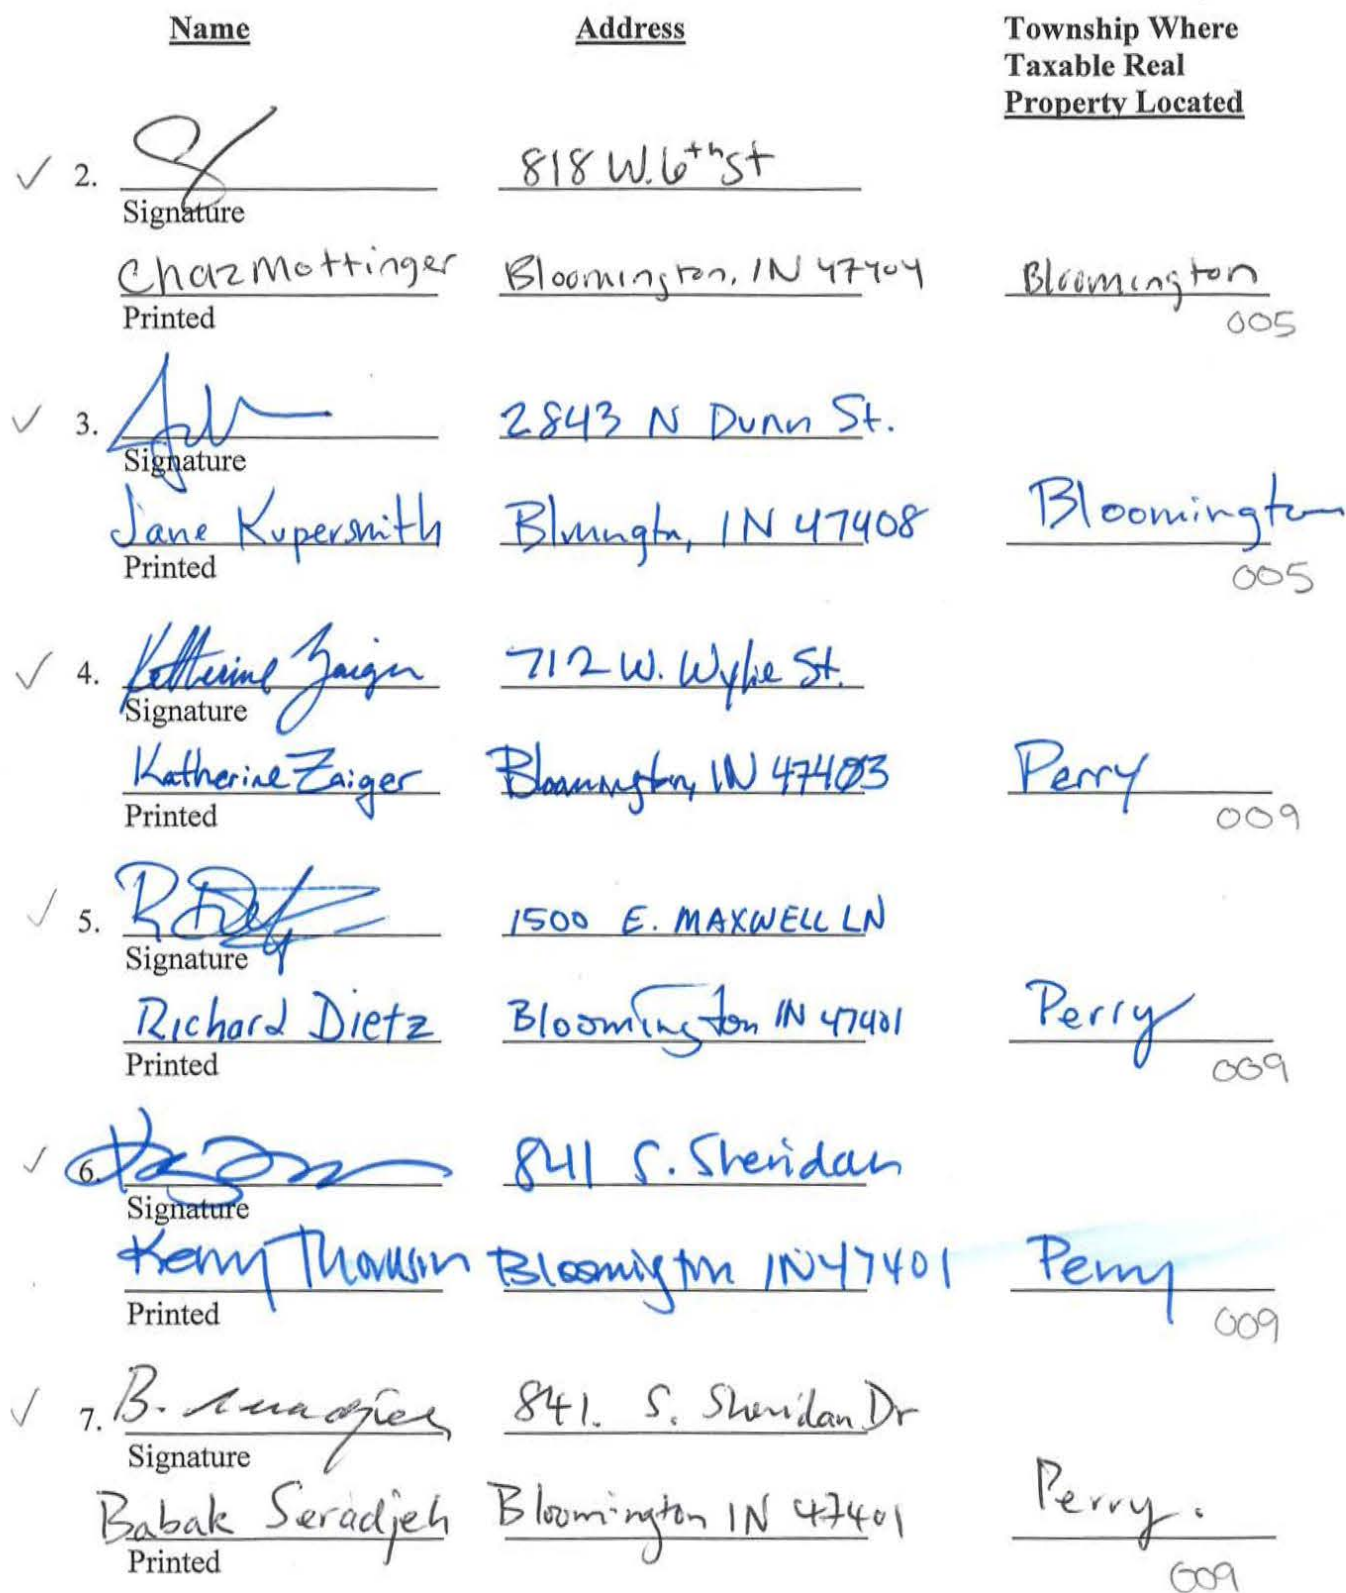 Name Address Township Where
Taxable Real
Property Located
✓ 2. 818 W. 6th St
Signature
Chaz Mottinger Bloomington, IN 47404 Bloomington
Printed 005
✓ 3. 2843 N Dunn St.
Signature
Jane Kupersmith Blmngtn, IN 47408 Bloomington
Printed 005
✓ 4. Katherine Zaiger 712 W. Wylie St.
Signature
Katherine Zaiger Bloomington, IN 47403 Perry
Printed 009
✓ 5. 1500 E. MAXWELL LN
Signature
Richard Dietz Bloomington IN 47401 Perry
Printed 009
✓ 6. 841 S. Sheridan
Signature
Kerry Thomson Bloomington IN 47401 Perry
Printed 009
✓ 7. B. Seradjeh 841. S. Sheridan Dr
Signature
Babak Seradjeh Bloomington IN 47401 Perry.
Printed 009